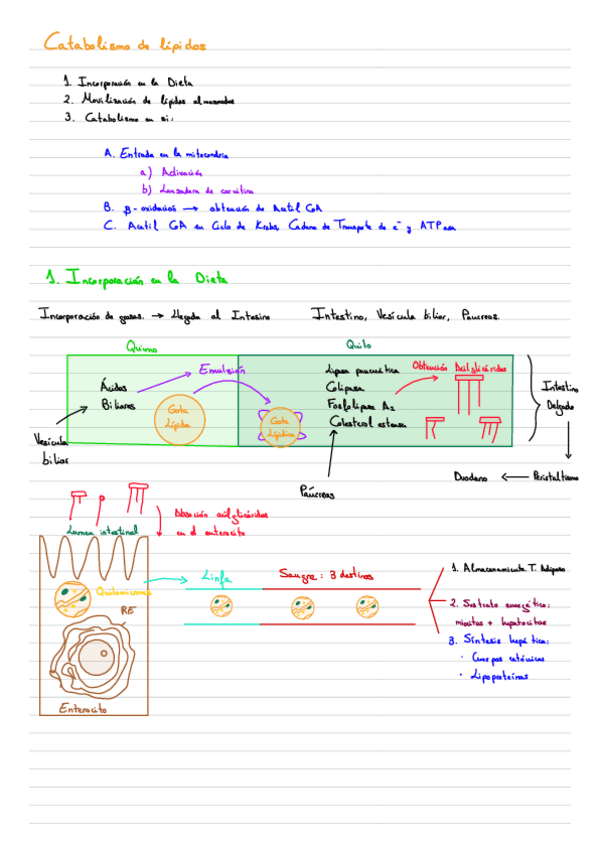 Catabolismo de lípidos
1. Incorporación en la Dieta
2. Movilización de lípidos almacenados
3. Catabolismo en si:
A. Entrada en la mitocondria
a) Activación
b) Lanzadera de carnitina
B. β-oxidación → obtención de Acetil CoA
C. Acetil CoA en Ciclo de Krebs, Cadena de Transporte de e⁻ y ATPasa
1. Incorporación en la Dieta
Incorporación de grasas. → Llegada al Intesino
Intestino, Vesícula biliar, Páncreas.
Quimo
Quilo
Ácidos
Biliares
Emulsión
Gota
Lípida
Gota
Lipídica
Lipasa pancreática
Colipasa
Fosfolipasa A2
Colesterol esterasa
Obtención Acilglicéridos
Intestino
Delgado
Vesícula
biliar
Páncreas
Duodeno ← Peristaltismo
Absorción acilglicéridos
en el enterocito
Lumen intestinal
Quilomicrones
RE
Enterocito
Linfa
Sangre: 3 destinos
1. Almacenamiento T. Adiposo.
2. Sustrato energético:
miocitos + hepatocitos
3. Síntesis hepática:
· Cuerpos cetónicos
· Lipoproteínas